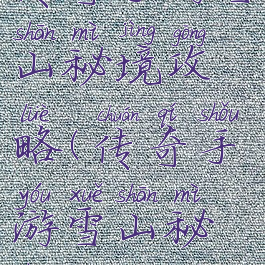 shān mì jìng gōng
山秘境攻
lüè chuán qí shǒu
略(传奇手
yóu xuě shān mì
游雪山秘